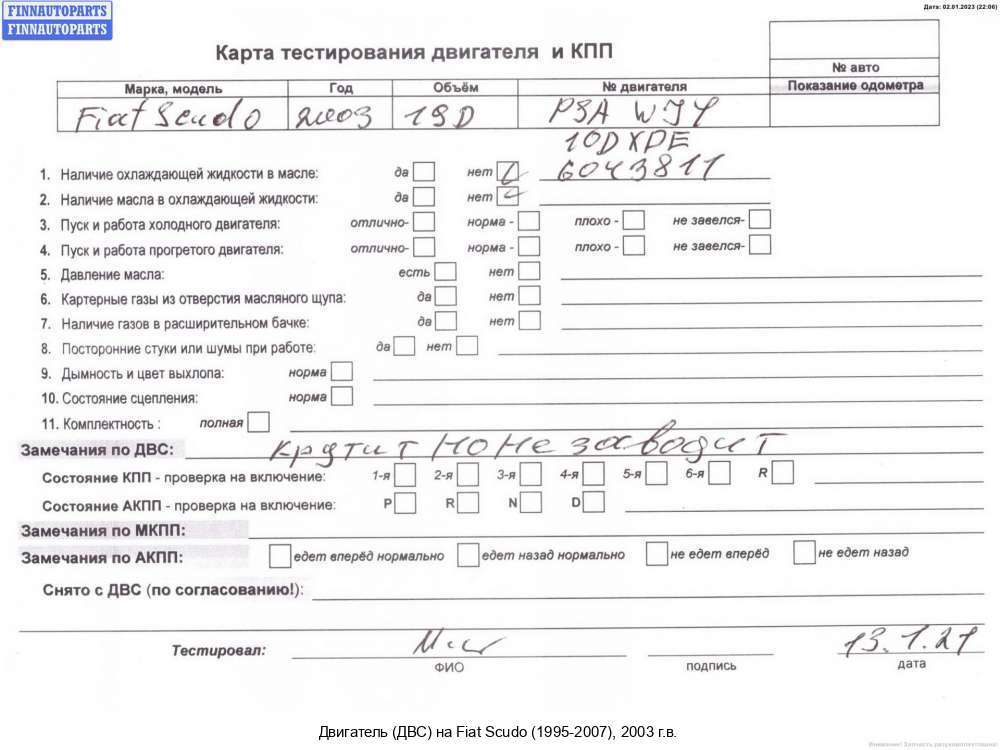 FINNAUTOPARTS
FINNAUTOPARTS
Дата: 02.01.2023 (22:06)
Карта тестирования двигателя и КПП
№ авто
Марка, модель Год Объём № двигателя Показание одометра
Fiat Scudo 2003 19D PSA WJY
10DXPE
6043811
1. Наличие охлаждающей жидкости в масле: да нет
2. Наличие масла в охлаждающей жидкости: да нет
3. Пуск и работа холодного двигателя: отлично- норма - плохо - не завелся-
4. Пуск и работа прогретого двигателя: отлично- норма - плохо - не завелся-
5. Давление масла: есть нет
6. Картерные газы из отверстия масляного щупа: да нет
7. Наличие газов в расширительном бачке: да нет
8. Посторонние стуки или шумы при работе: да нет
9. Дымность и цвет выхлопа: норма
10. Состояние сцепления: норма
11. Комплектность : полная
Замечания по ДВС: крутит но не заводит
Состояние КПП - проверка на включение: 1-я 2-я 3-я 4-я 5-я 6-я R
Состояние АКПП - проверка на включение: P R N D
Замечания по МКПП:
Замечания по АКПП: едет вперёд нормально едет назад нормально не едет вперёд не едет назад
Снято с ДВС (по согласованию!):
Тестировал: 13.1.21
ФИО подпись дата
Двигатель (ДВС) на Fiat Scudo (1995-2007), 2003 г.в.